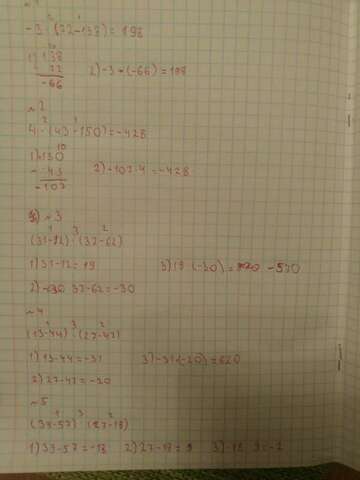 -3 · (72-138) = 198
1) 138
- 72
-66
2) -3 · (-66) = 198
~2
4 · (43-150) = -428
1) 150
- 43
-107
2) -107 · 4 = -428
~3
(31-12) · (32-62)
1) 31-12 = 19
3) 19 · (-30) = -570
2) 32-62 = -30
~4
(13-44) · (27-47)
1) 13-44 = -31
3) -31 · (-20) = 620
2) 27-47 = -20
~5
(39-57) · (27-18)
1) 39-57 = -18 2) 27-18 = 9 3) -18 : 9 = -2